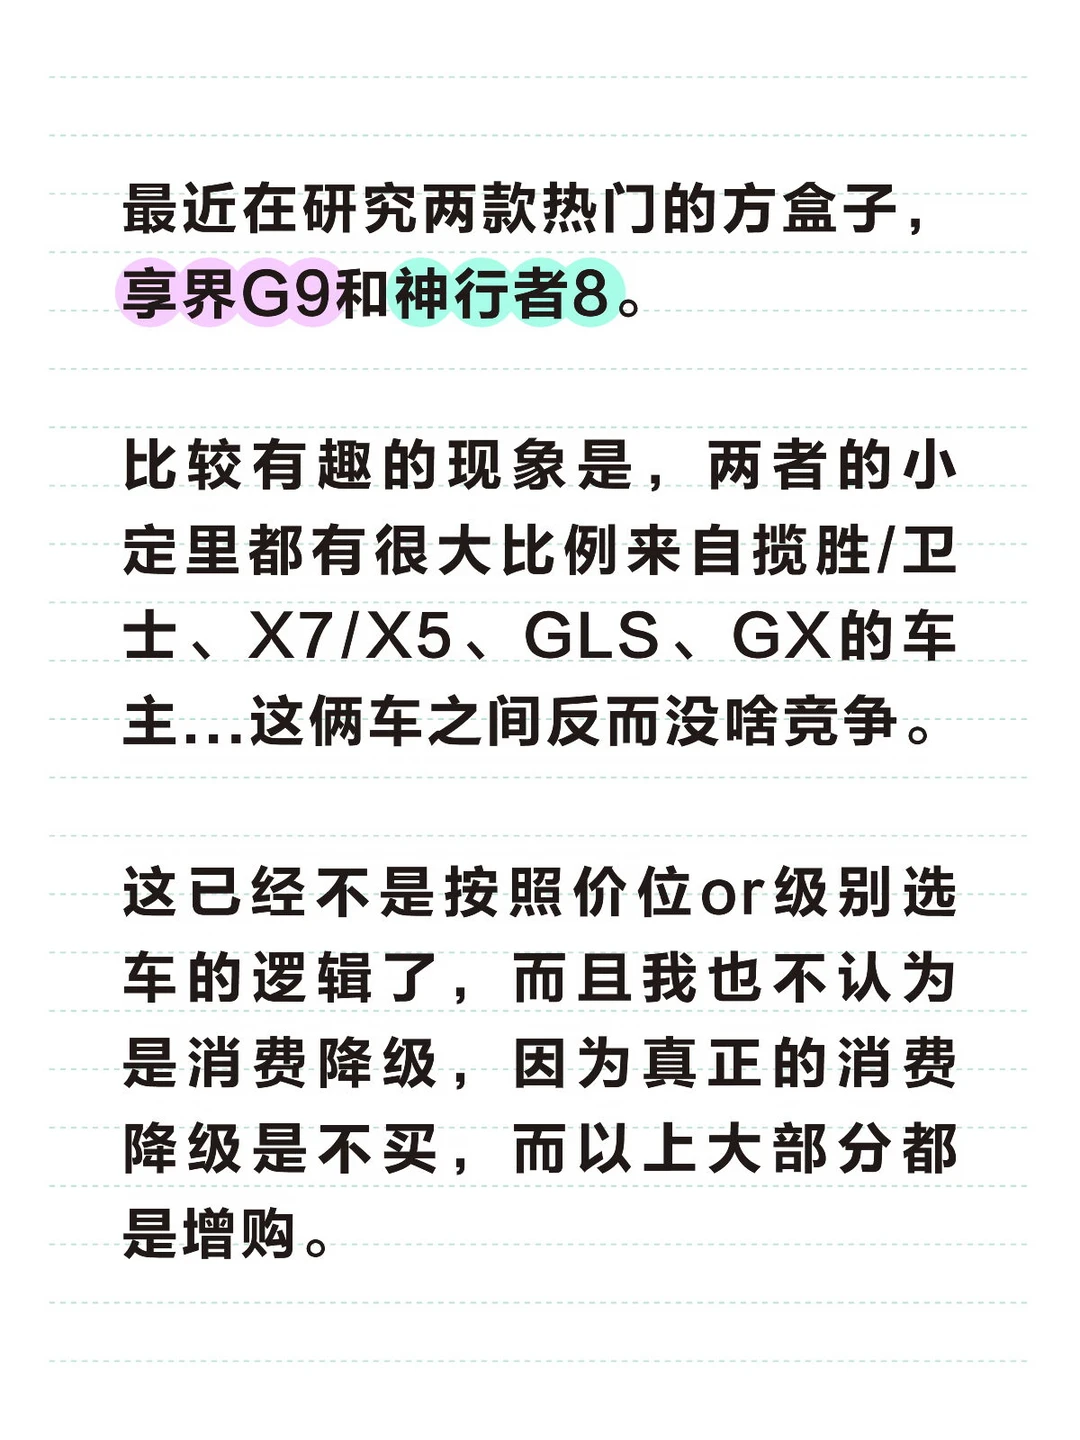 最近在研究两款热门的方盒子，
享界G9和神行者8。
比较有趣的现象是，两者的小
定里都有很大比例来自揽胜/卫
士、X7/X5、GLS、GX的车
主...这俩车之间反而没啥竞争。
这已经不是按照价位or级别选
车的逻辑了，而且我也不认为
是消费降级，因为真正的消费
降级是不买，而以上大部分都
是增购。